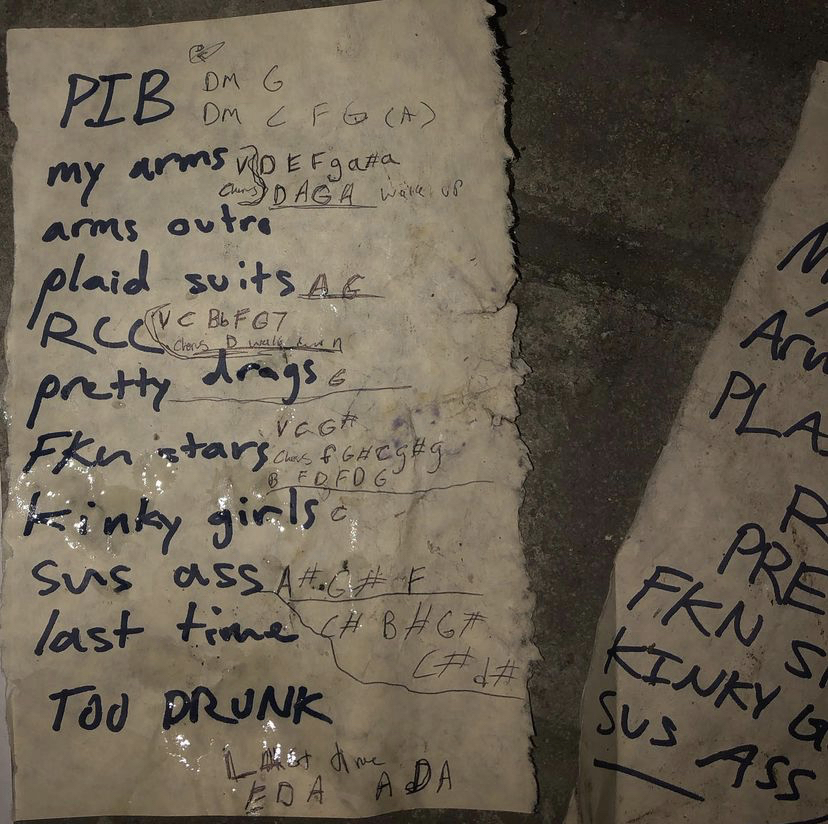 DM G
PIB DM C F G (A)
my arms V D E F g a#a
Chorus D A G A walk up
arms outro
plaid suits A G
RCC V C Bb F G7
Chorus D walk down
pretty drags G
V C G#
FKn stars Chorus f G# C g# g
B F D F D G
Kinky girls C
sus ass A# G# F
last time C# B# G#
C# d#
TOO DRUNK
Last time
F D A A D A
M
Arm
PLA
R
PRE
FKN S
KINKY G
SUS ASS